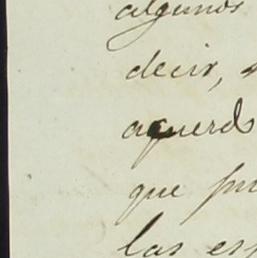 algunos
decir,
acuerdo
que
las